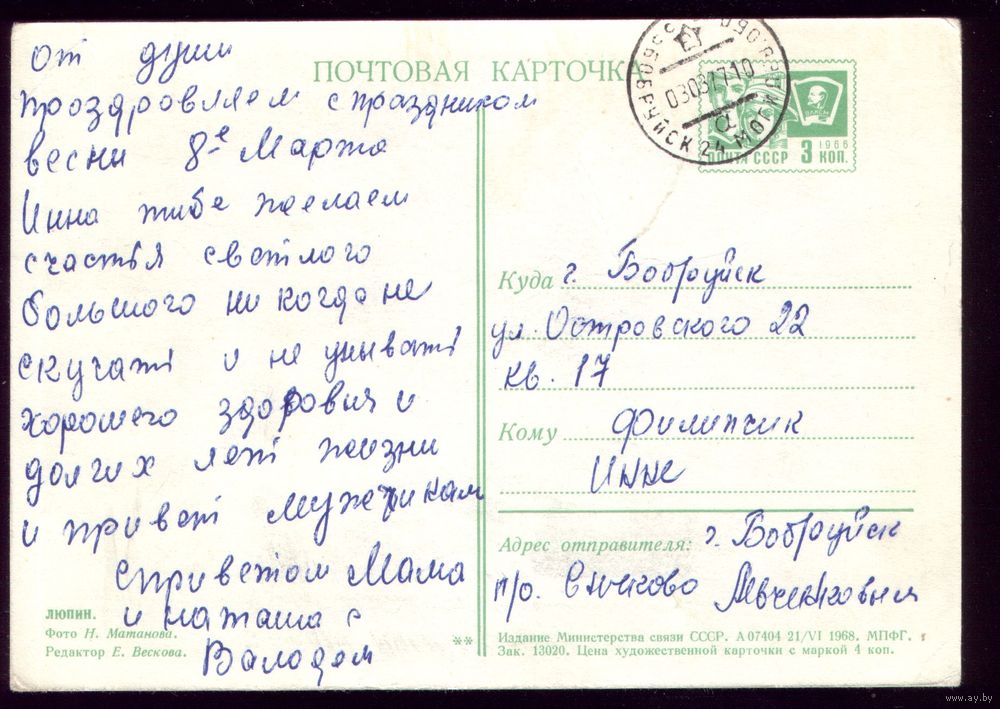 От души
проздровляем с праздником
весни 8-е Марта
Инна тибе желаем
счастья светлого
большого ни когда не
скучать и не унывать
хорошего здоровия и
долгих лет жизни
и привет мужчикам
с приветом Мама
и наташа с
Валодем
ЛЮПИН.
Фото Н. Матанова.
Редактор Е. Вескова.
ПОЧТОВАЯ КАРТОЧКА
БОБРУЙСК 24 МОГИЛ
030371 10
ПОЧТА СССР 3 КОП.
1966
ВЛКСМ
Куда г. Бобруйск
ул. Островского 22
кв. 17
Кому Филипчик
Инне
Адрес отправителя: г. Бобруйск
п/о. Сычково
**
Издание Министерства связи СССР. А 07404 21/VI 1968. МПФГ.
Зак. 13020. Цена художественной карточки с маркой 4 коп.
www.ay.by